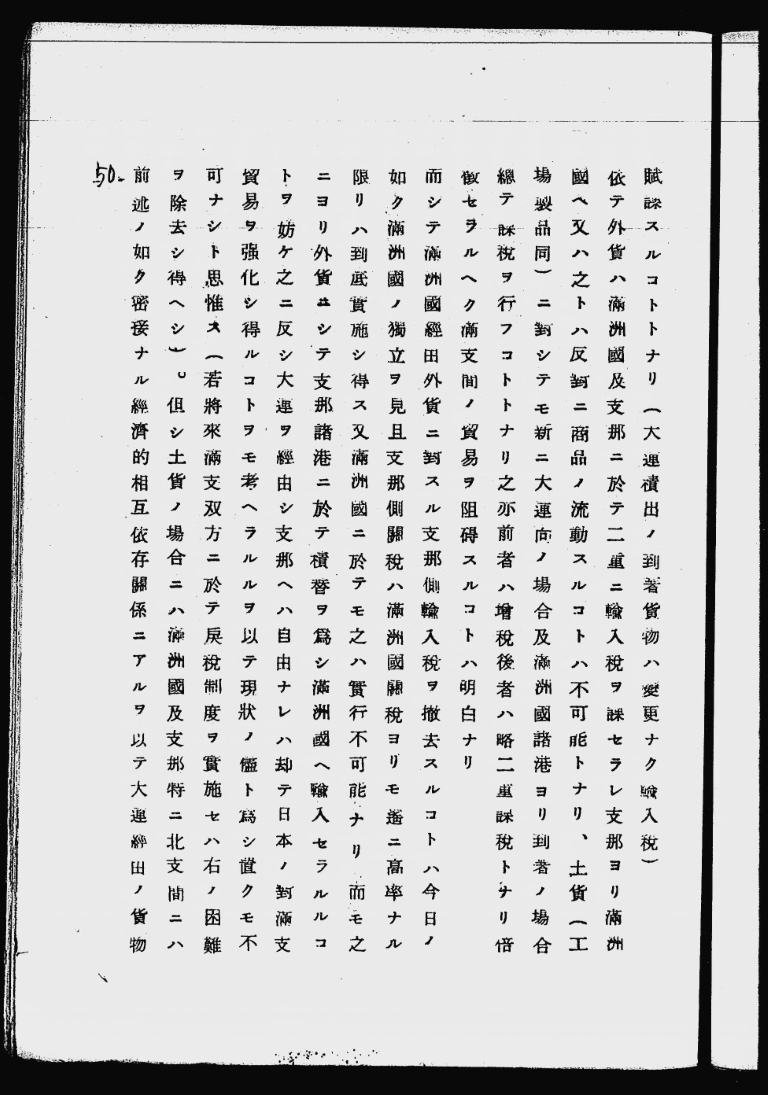 賦課スルコトトナリ(大連積出ノ到著貨物ハ變更ナク輸入税)
依テ外貨ハ滿洲國及支那ニ於テ二重ニ輸入税ヲ課セラレ支那ヨリ滿洲
國ヘ又ハ之トハ反對ニ商品ノ流動スルコトハ不可能トナリ、土貨(工
場製品同)ニ對シテモ新ニ大連向ノ場合及滿洲國諸港ヨリ到著ノ場合
總テ課税ヲ行フコトトナリ之亦前者ハ增税後者ハ略二重課税トナリ倍
徴セラルヘク滿支間ノ貿易ヲ阻碍スルコトハ明白ナリ
而シテ滿洲國經由外貨ニ對スル支那側輸入税ヲ撤去スルコトハ今日ノ
如ク滿洲國ノ獨立ヲ見且支那側關税ハ滿洲國關税ヨリモ遙ニ高率ナル
限リハ到底實施シ得ス又滿洲國ニ於テモ之ハ實行不可能ナリ 而モ之
ニヨリ外貨ニシテ支那諸港ニ於テ積替ヲ爲シ滿洲國ヘ輸入セラルルコ
トヲ妨ケ之ニ反シ大連ヲ經由シ支那ヘハ自由ナレハ却テ日本ノ對滿支
貿易ヲ强化シ得ルコトヲモ考ヘラルルヲ以テ現狀ノ儘ト爲シ置クモ不
可ナシト思惟ス(若將來滿支双方ニ於テ戾税制度ヲ實施セハ右ノ困難
ヲ除去シ得ヘシ)。但シ土貨ノ場合ニハ滿洲國及支那特ニ北支間ニハ
前述ノ如ク密接ナル經濟的相互依存關係ニアルヲ以テ大連經由ノ貨物
50-